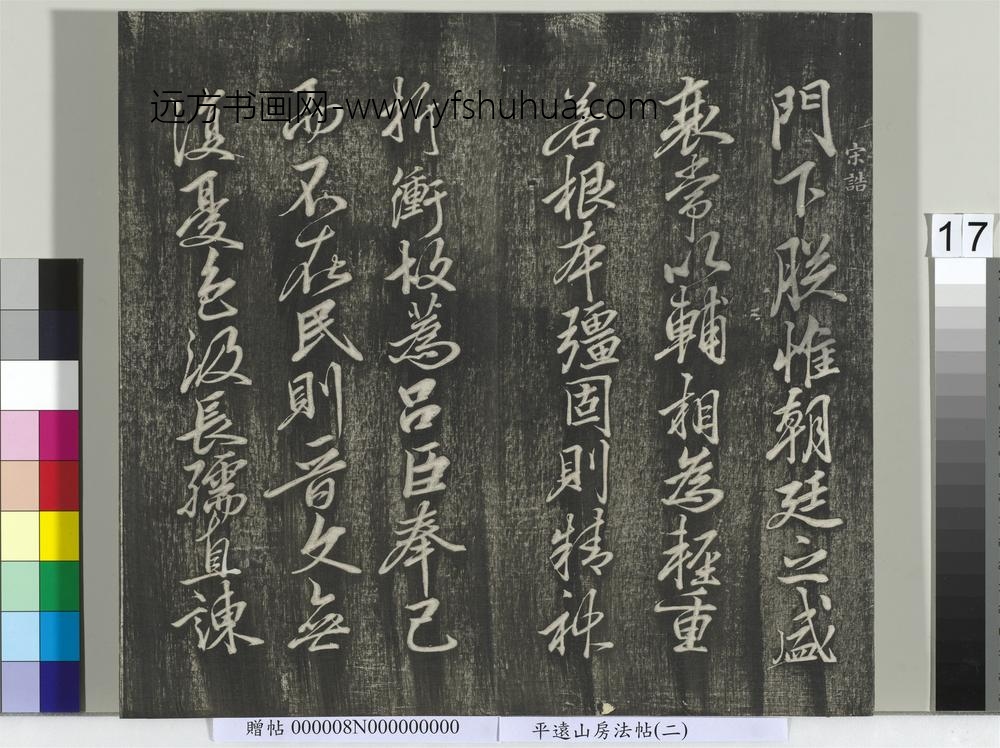 宋誥
門下朕惟朝廷之盛
衰常以輔相為輕重
若根本彊固則精神
折衝故蒍呂臣奉己
而不在民則晉文無
復憂色汲長孺直諫
远方书画网-www.yfshuhua.com
17
贈帖 000008N000000000
平遠山房法帖(二)